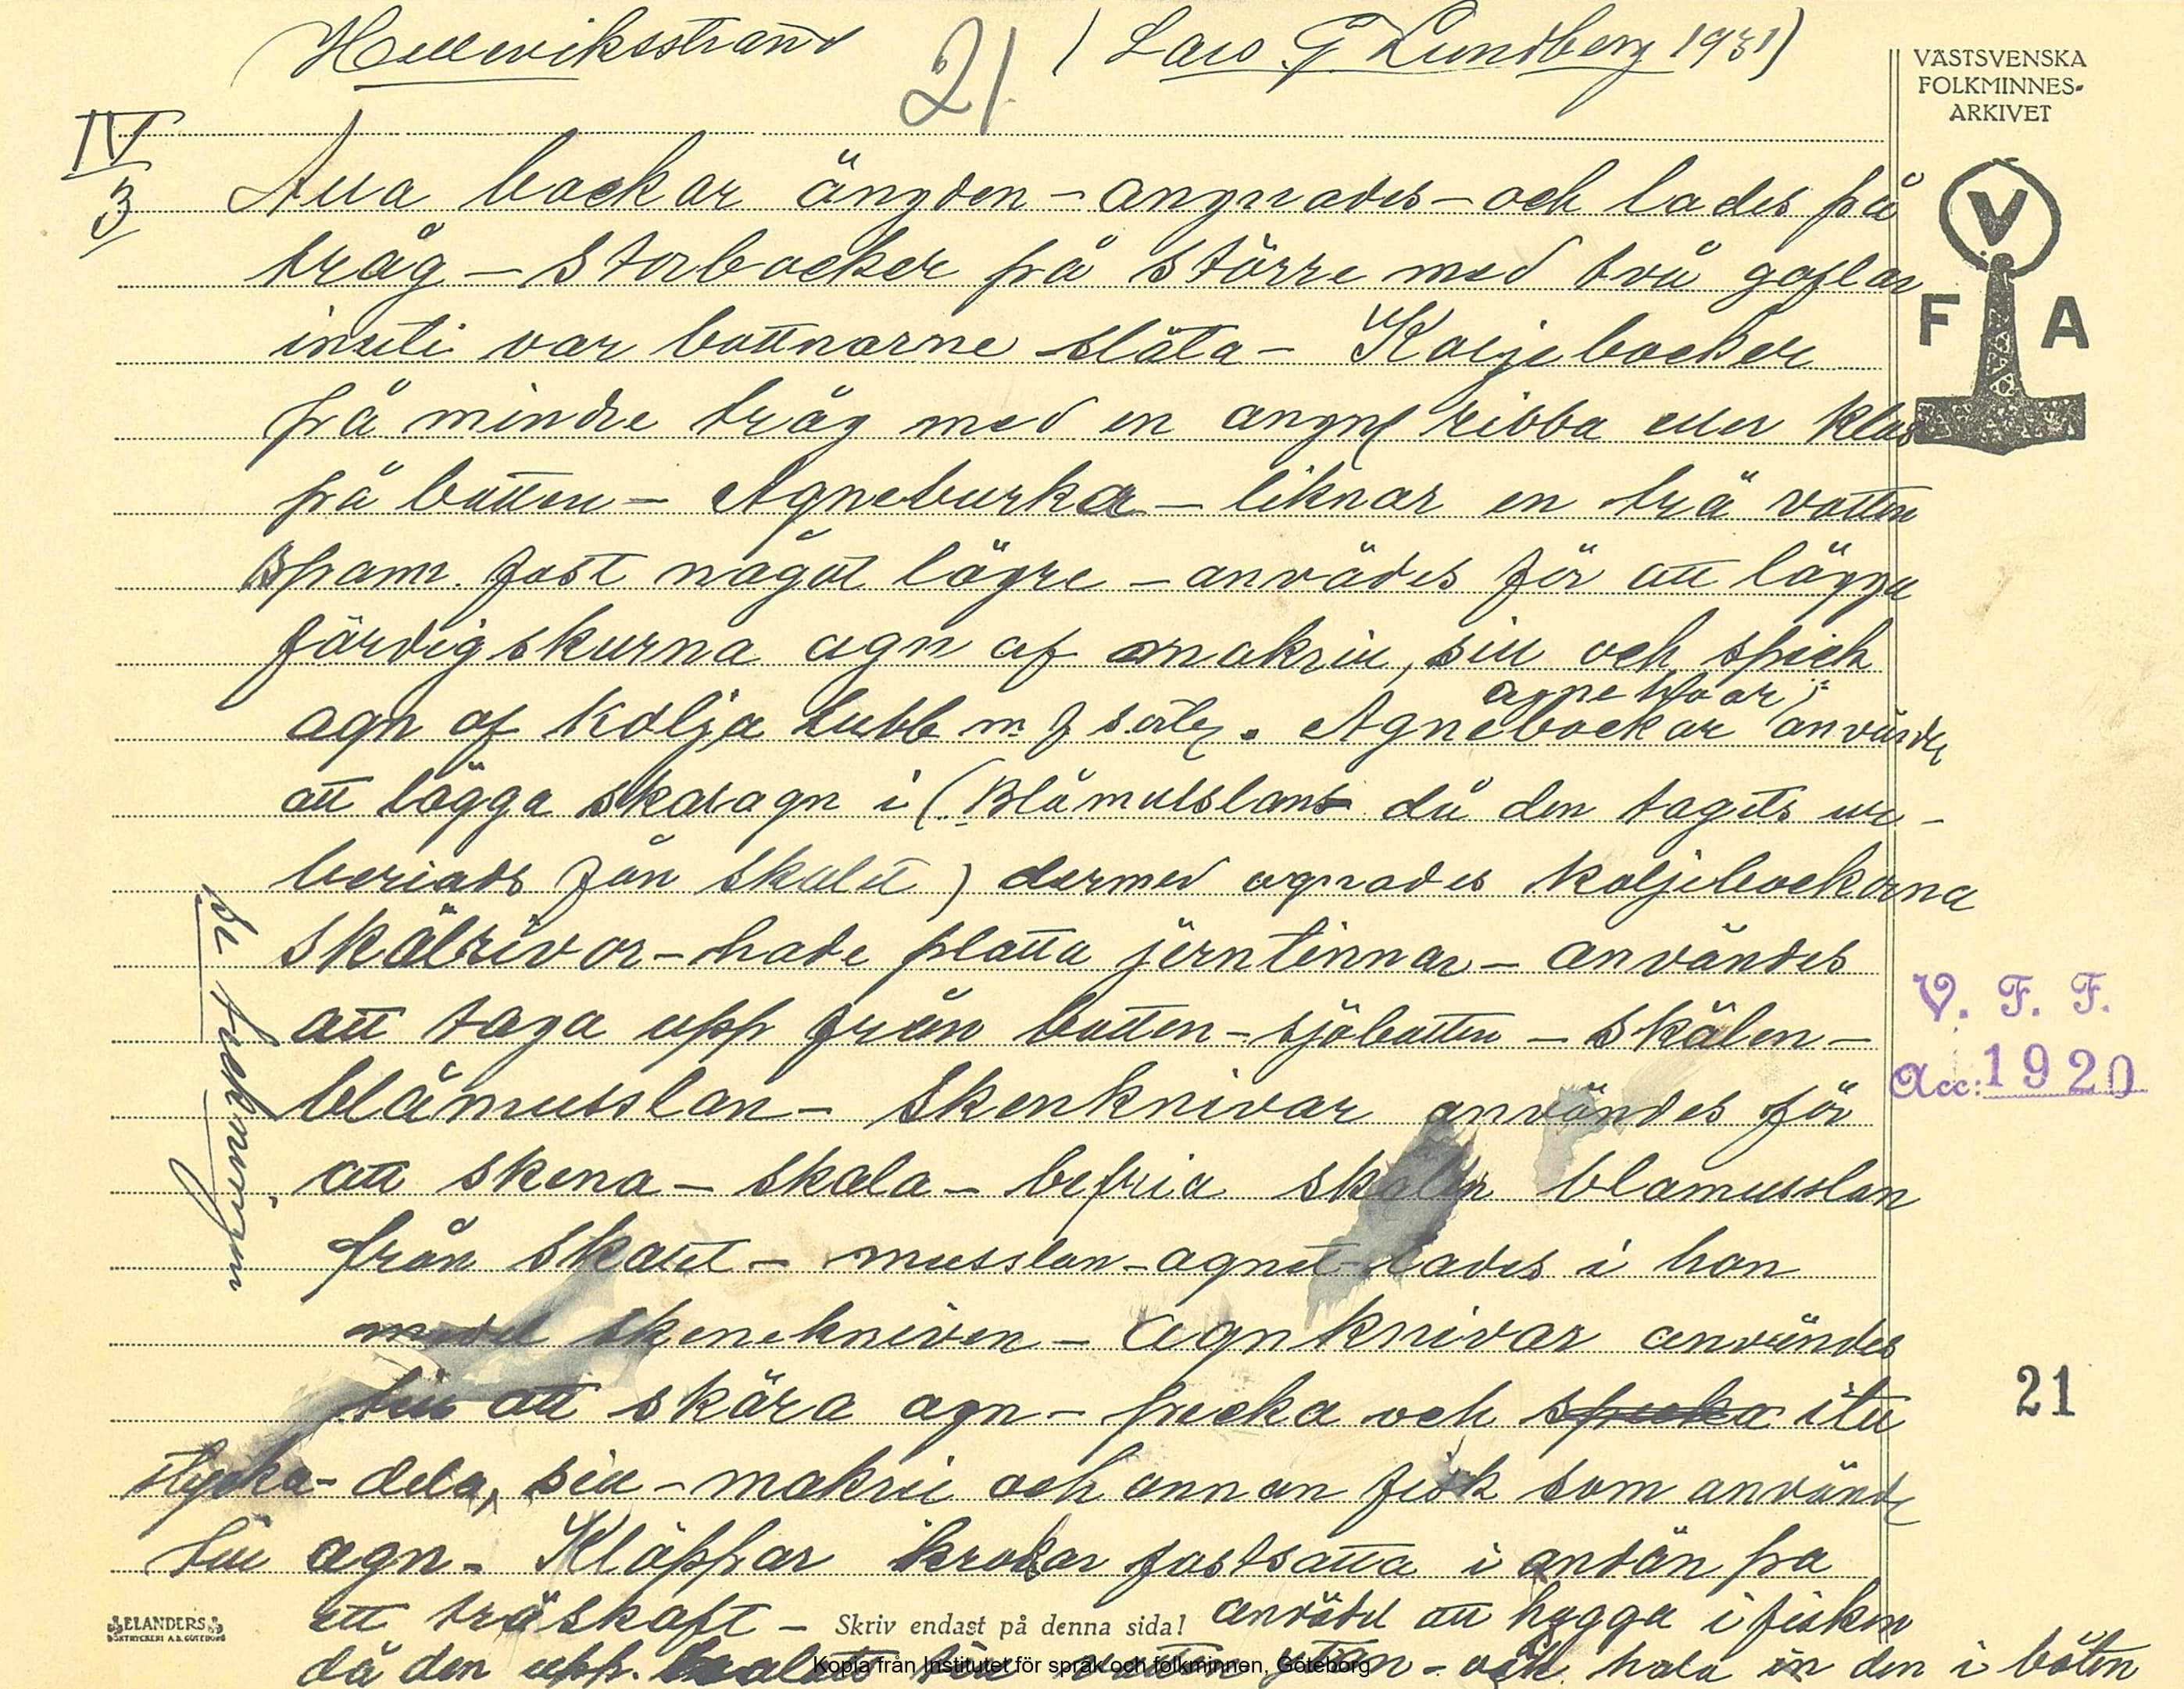 Hellwiksstrand 21 (Lars. G Lundberg 1931)
VÄSTSVENSKA
FOLKMINNES-
ARKIVET
IV
3
Alla backar ängden - angnades - och lades på
tråg - Storbacker på större med två gaflar
inuti var bottnarne släta - Koljebacker
på mindre tråg med en angne ribba eller klas
på botten - Agneburka - liknar en trä vatten
spann. fast något lägre - anvädes för att lägga
färdigskurna agn af makrill, sill och speck
agn af Kolja Lubb m. fl. sorter. Agnebackar användes
agne hoar
V
F A
att lägga skalagn i (Blåmusslans då den tagits ur -
beriads från skalet) dermed agnades koljebackorna
Skälrivor - hade platta jerntinnar - användes
att taga upp från botten - sjöbotten - skälen -
blåmusslan - Skenknivar användes för
att skena - skala - befria skälen blåmusslan
från skalet - musslan - agnet - lades i hon
medel skenekniven - agnknivar användes
till att skära agn - pecka och itu
stycka - dela, sill - makrill och annan fisk som användes
till agn - Kläppar krokar fastsatta i andän på
ett träskaft - anvädes att hygga i fisken
då den upp. halats till vatten ytan - och hala in den i båten
se teckningen
V. F. F.
Acc: 1920
21
ELANDERS
BOKTRYCKERI A.B. GÖTEBORG
Skriv endast på denna sida!
Kopia från Institutet för språk och folkminnen, Göteborg